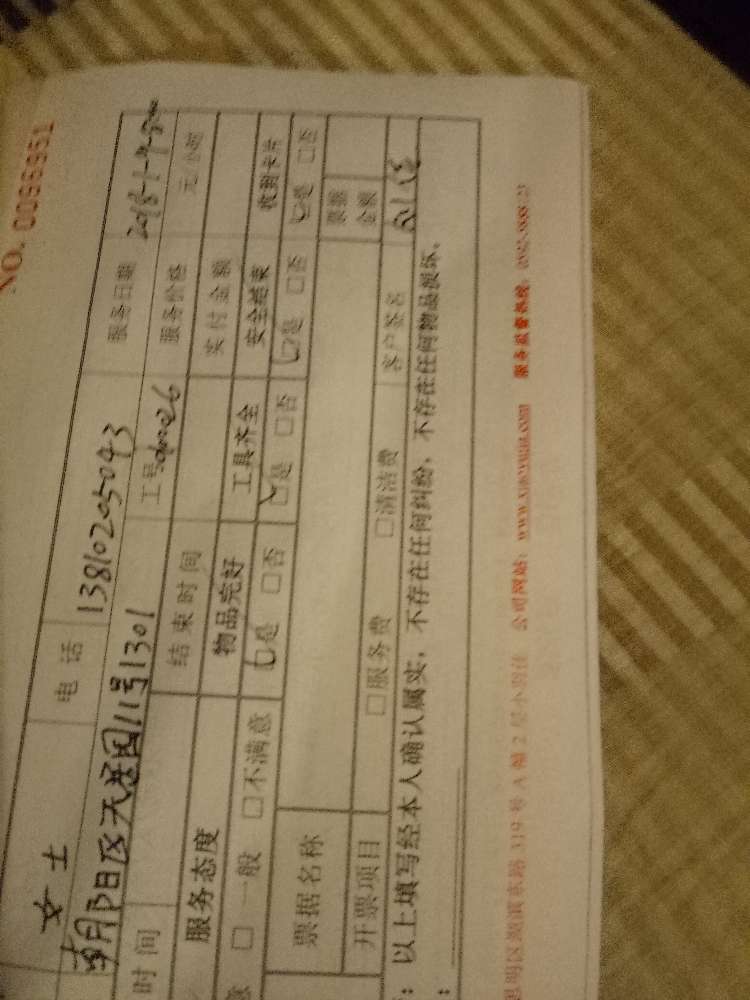 NO. 0096951
女士 电话 13810205043 服务日期
朝阳区天居园11号1301 工号 服务价格 元/小时
时间 结束时间 实付金额
服务态度 物品完好 工具齐全 安全结束 收到卡片
□一般 □不满意 □是 □否 □是 □否 □是 □否 □是 □否
票据名称 票据金额
开票项目 □服务费 □清洁费 客户签名
以上填写经本人确认属实，不存在任何纠纷，不存在任何物品损坏。
思明区湖滨东路319号A幢2层 公司网站： 服务监督热线：